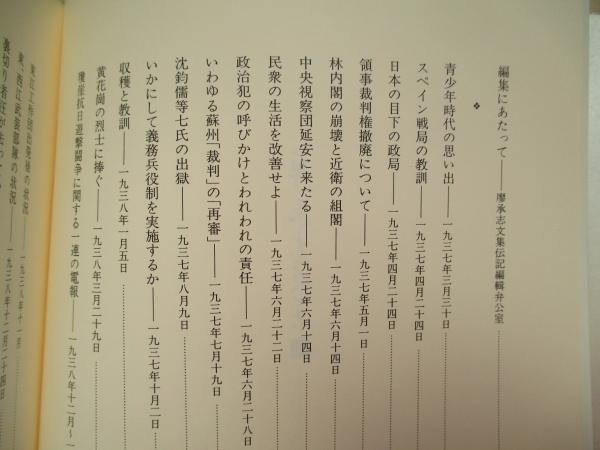 編集にあたって——廖承志文集伝記編輯弁公室
青少年時代の思い出——一九三七年三月三十日
スペイン戦局の教訓——一九三七年四月二十四日
日本の目下の政局——一九三七年四月二十四日
領事裁判権撤廃について——一九三七年五月一日
林内閣の崩壊と近衛の組閣——一九三七年六月十四日
中央視察団延安に来たる——一九三七年六月十四日
民衆の生活を改善せよ——一九三七年六月二十二日
政治犯の呼びかけとわれわれの責任——一九三七年六月二十八日
いわゆる蘇州「裁判」の「再審」——一九三七年七月十九日
沈鈞儒等七氏の出獄——一九三七年八月九日
いかにして義務兵役制を実施するか——一九三七年十月二日
収穫と教訓——一九三八年一月五日
黄花崗の烈士に捧ぐ——一九三八年三月二十九日
瓊崖抗日遊撃闘争に関する一連の電報——一九三八年十二月〜一
東、西江武装部隊の状況——一九三八年十二月二十四日